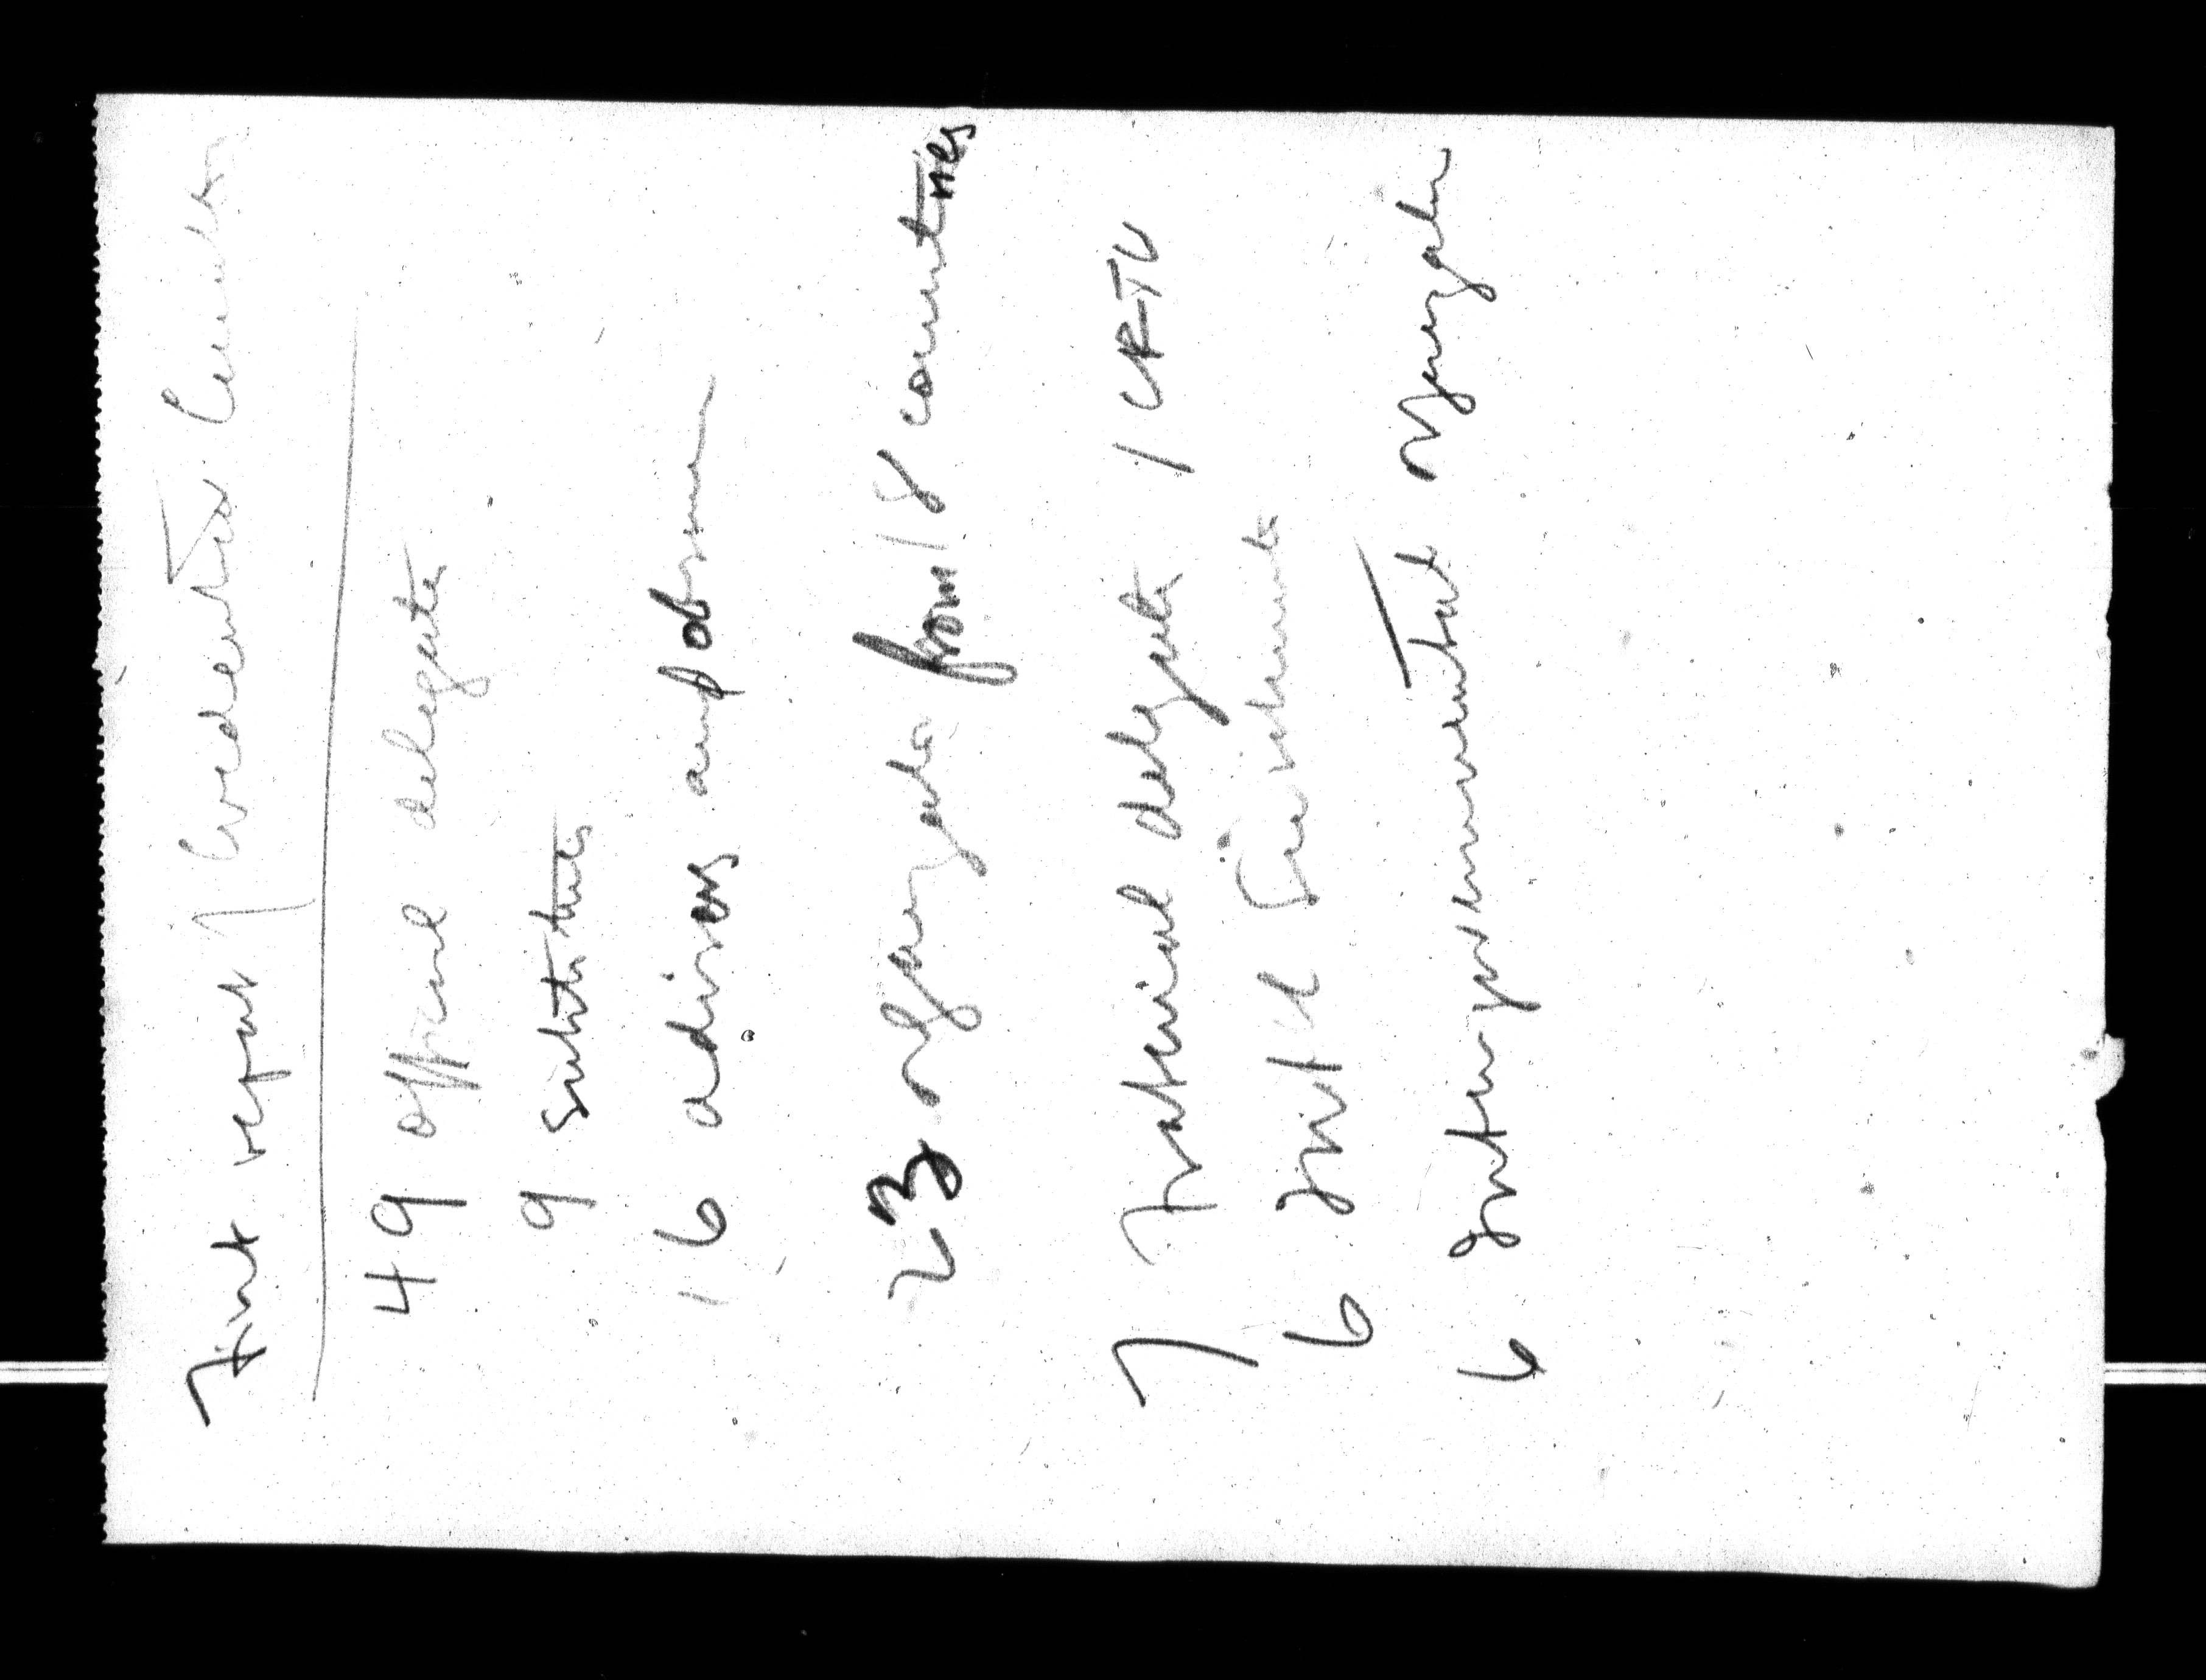 First report of Credential Committee
49 official delegates
9 substitutes
16 advisers and observers
23 organizations from 18 countries
7 fraternal delegates 1 CRTU
6 Int'el
6 Intergovernmental organization